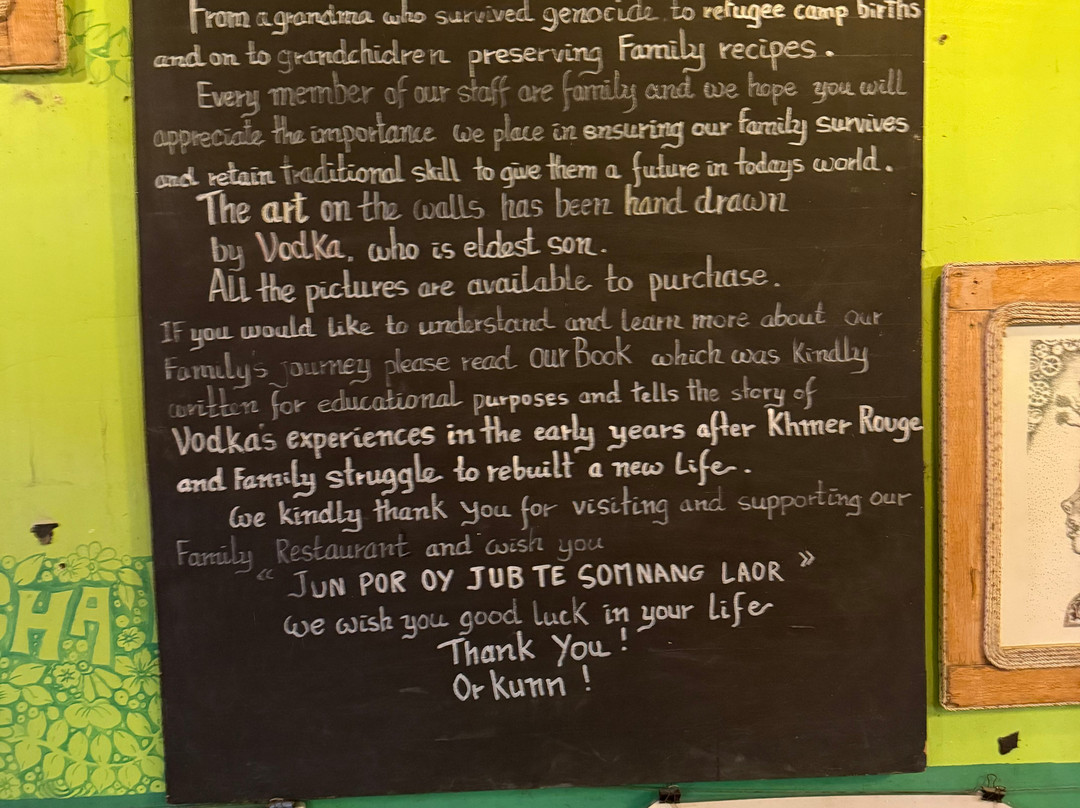 From a grandma who survived genocide to refugee camp births
and on to grandchidren preserving Family recipes.
Every member of our staff are family and we hope you will
appreciate the importance we place in ensuring our family survives
and retain traditional skill to give them a future in todays world.
The art on the walls has been hand drawn
by Vodka, who is eldest son.
All the pictures are available to purchase.
IF you would like to understand and learn more about our
Family's journey please read Our Book which was kindly
written for educational purposes and tells the story of
Vodka's experiences in the early years after Khmer Rouge
and Family struggle to rebuilt a new Life.
We kindly thank you for visiting and supporting our
Family Restaurant and wish you
“ JUN POR OY JUB TE SOMNANG LAOR ”
we wish you good luck in your life
Thank You !
Or Kunn !
HA